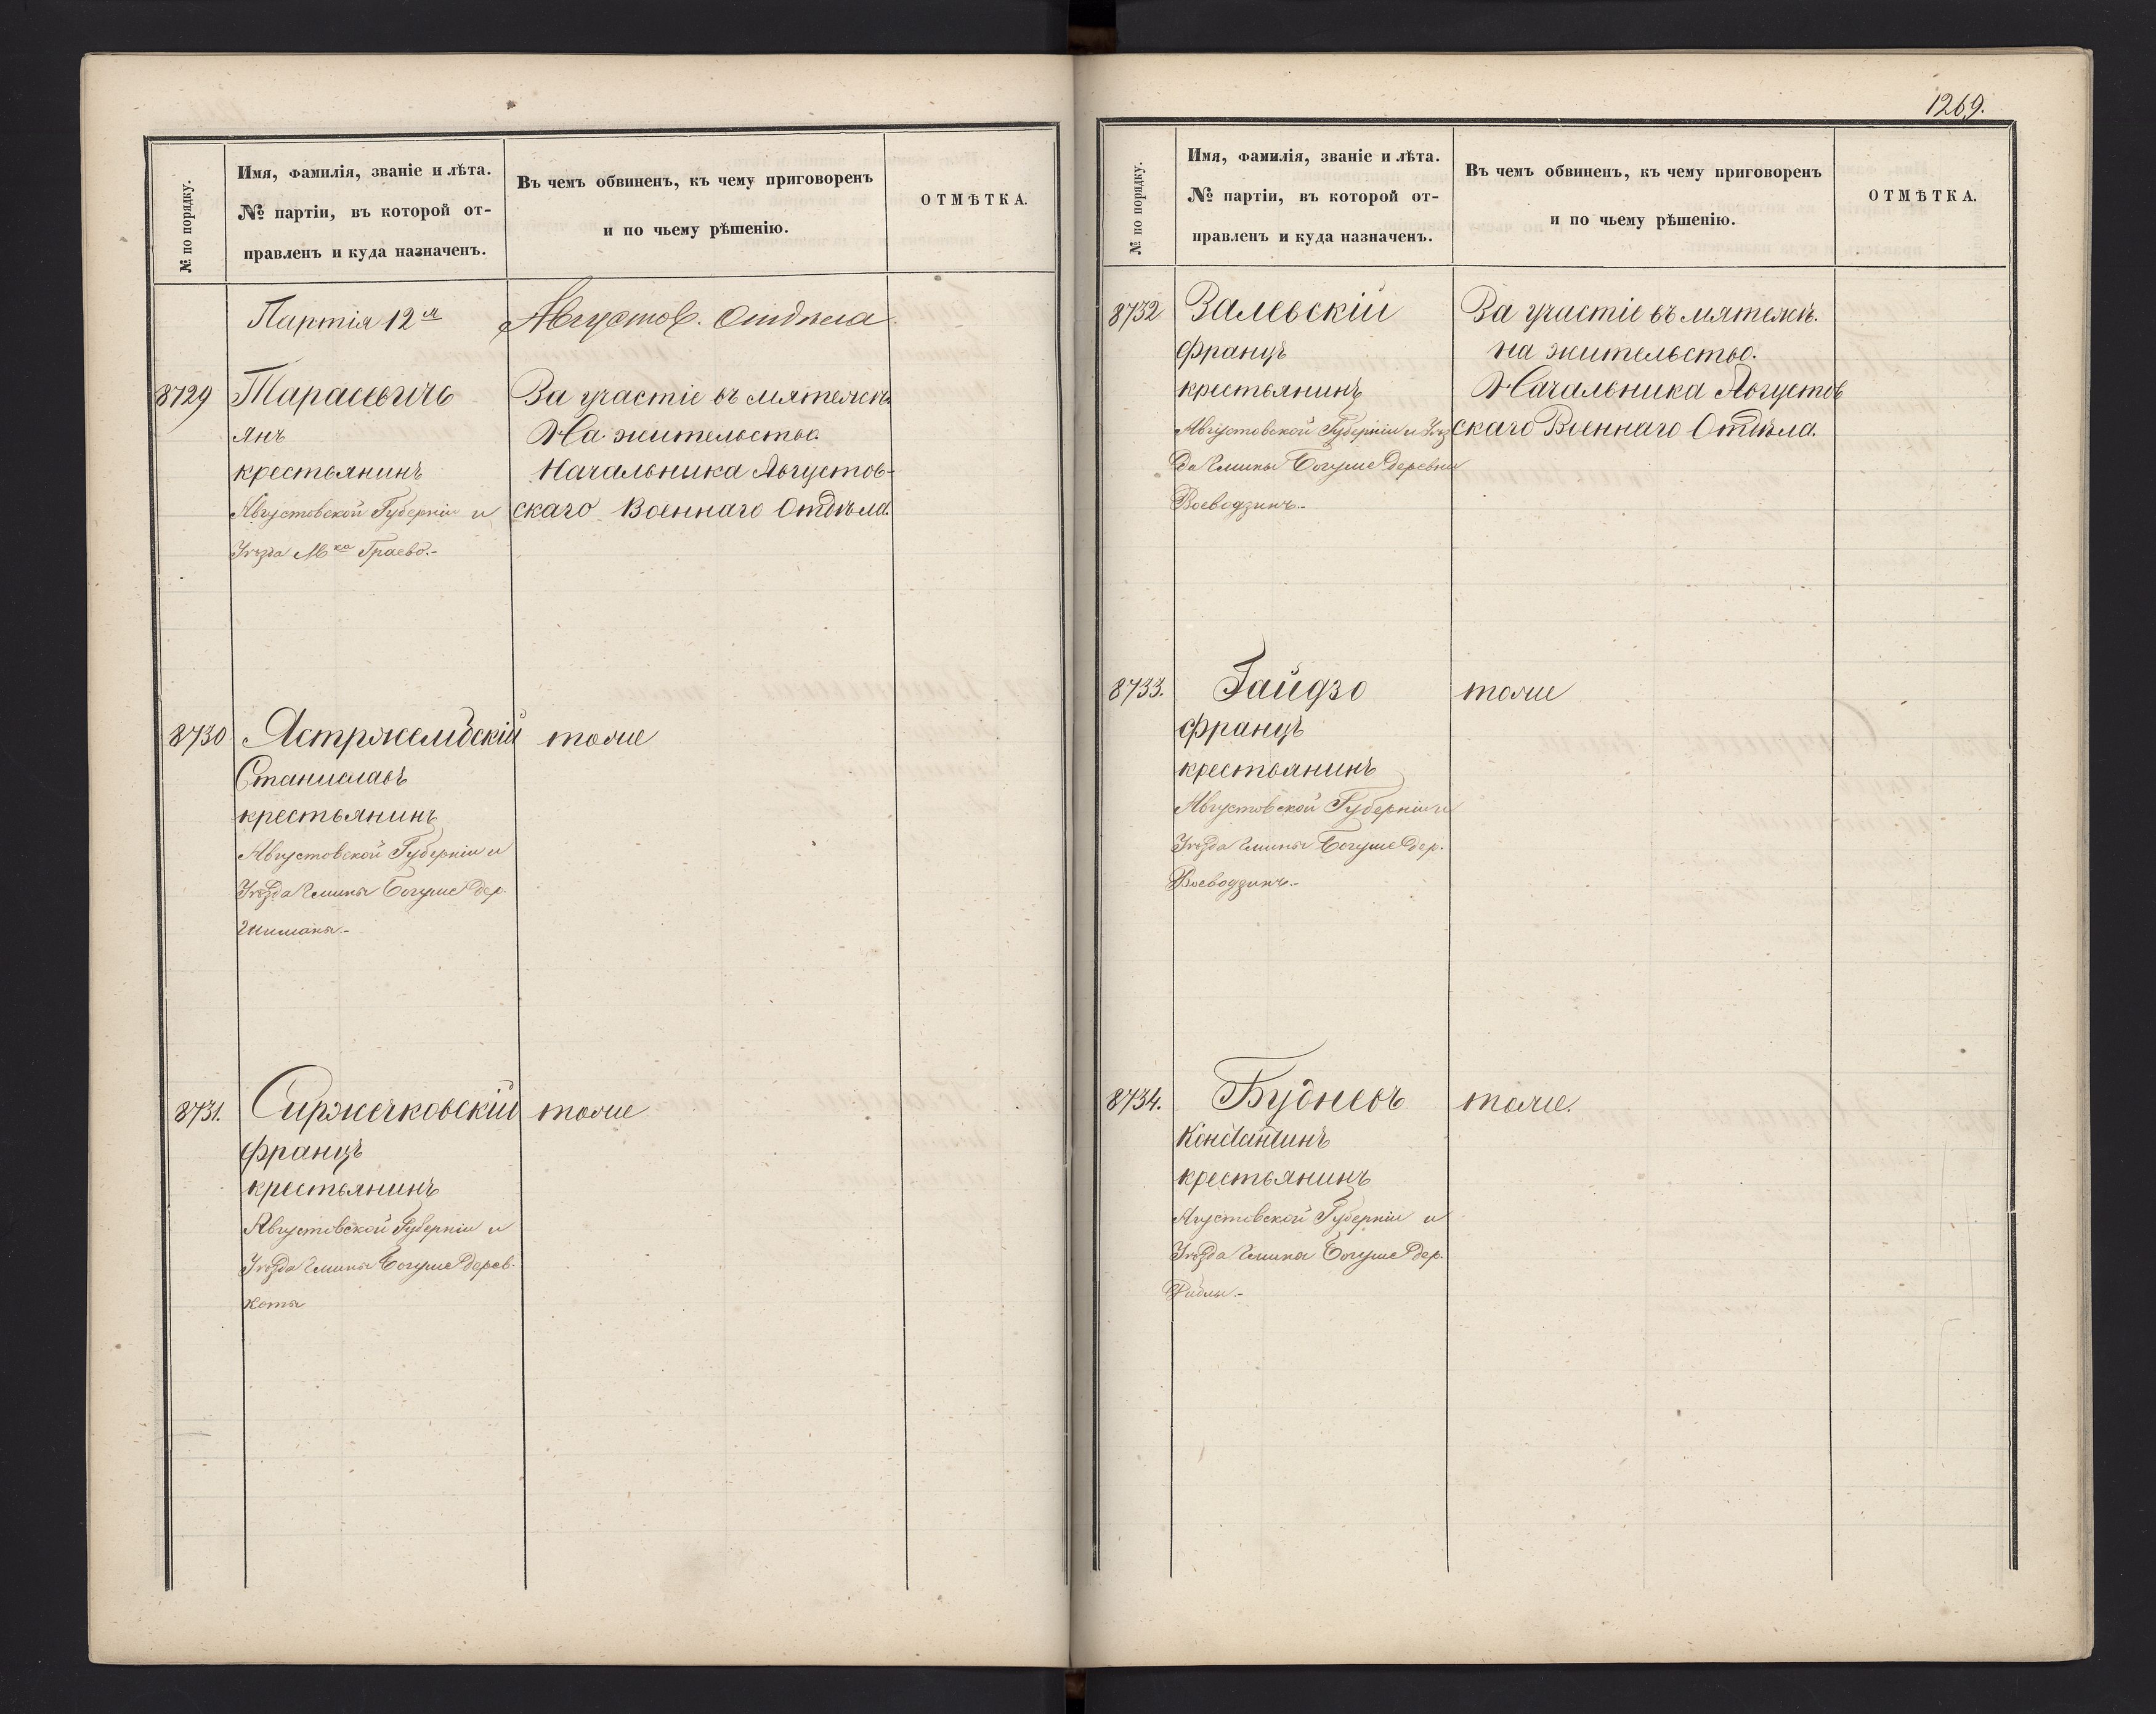 № по порядку.
Имя, фамилія, званіе и лѣта.
№ партіи, въ которой от-
правленъ и куда назначенъ.
Въ чемъ обвиненъ, къ чему приговоренъ
и по чьему рѣшенію.
ОТМѢТКА.
Партія 12я Августов. Отдѣла
8729 Тарасевичъ За участіе въ мятежѣ.
Янъ На жительство.
крестьянинъ Начальника Августов-
Августовской Губерніи и скаго Военнаго Отдѣла.
Уѣзда Мка Граево.-
8730 Ястржембскій тоже
Станиславъ
крестьянинъ
Августовской Губерніи и
Уѣзда Гмины Богуше дер.
8731. тоже
Францъ
крестьянинъ
Августовской Губерніи и
Уѣзда Гмины Богуше дерев.
Коты
1269.
№ по порядку.
Имя, фамилія, званіе и лѣта.
№ партіи, въ которой от-
правленъ и куда назначенъ.
Въ чемъ обвиненъ, къ чему приговоренъ
и по чьему рѣшенію.
ОТМѢТКА.
8732 Залевскій За участіе въ мятежѣ.
Францъ на жительство.
крестьянинъ Начальника Августов
Августовской Губерніи и Уѣз скаго Военнаго Отдѣла.
да Гмины Богуше деревни
Воеводзинъ.-
8733. Гайдзо тоже
Францъ
крестьянинъ
Августовской Губерніи и
Уѣзда Гмины Богуше дер.
Воеводзинъ.-
8734. Будневъ тоже.
Константинъ
крестьянинъ
Агустовской Губерніи и
Уѣзда Гмина Богуше дер.